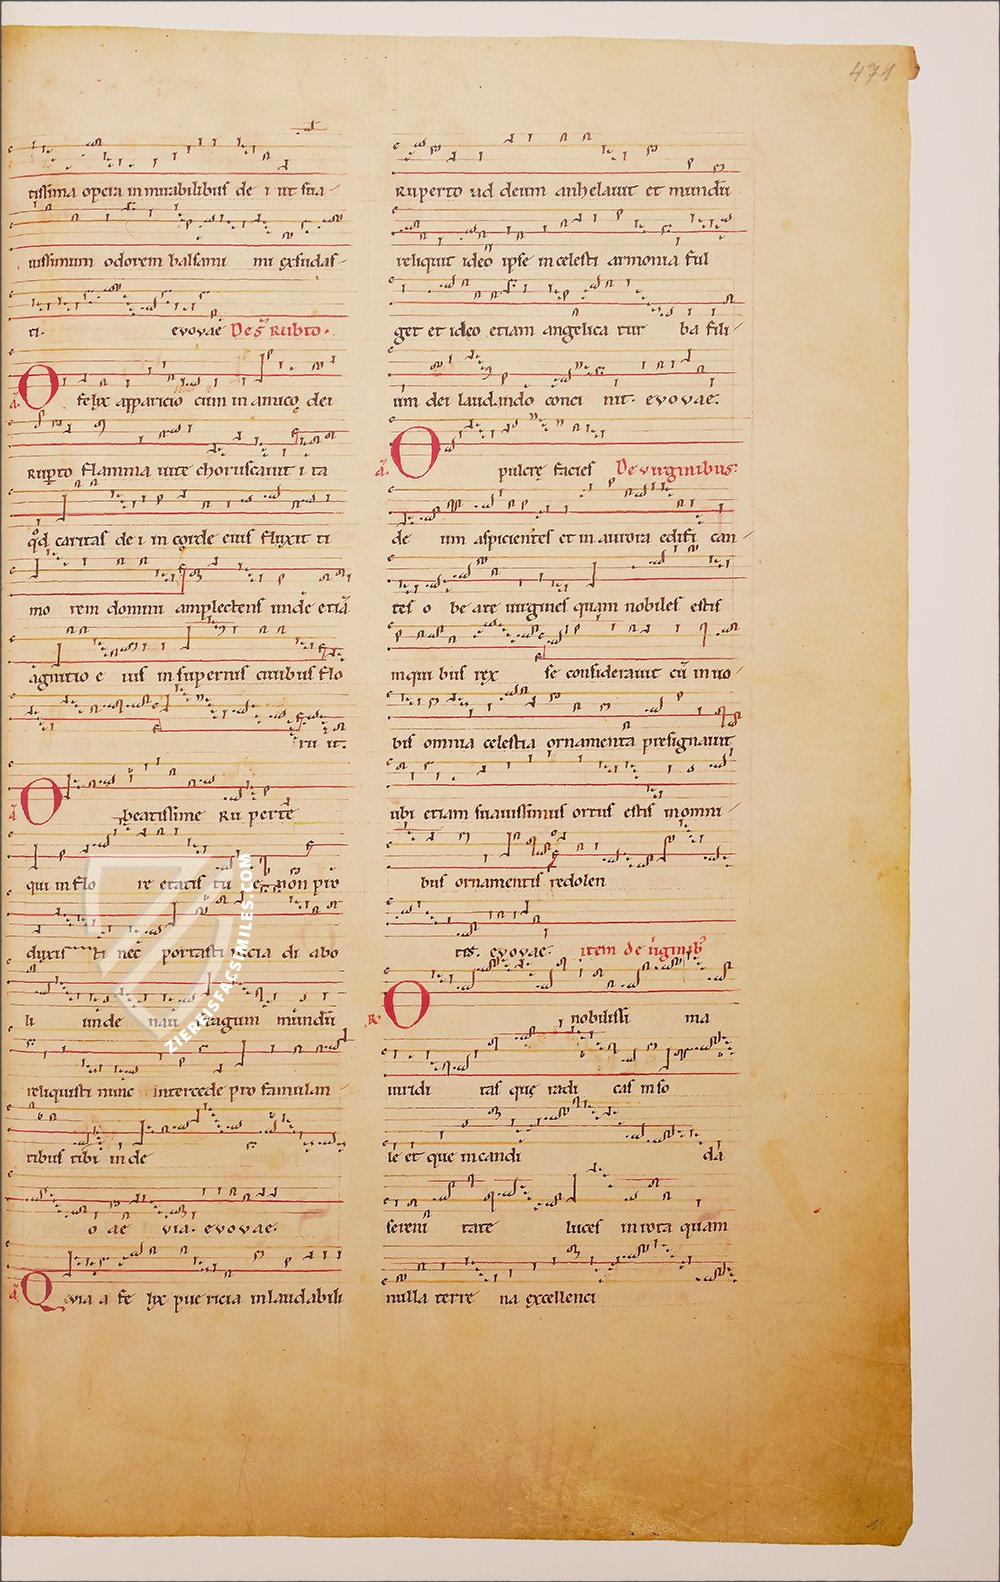 471
tissima opera in mirabilibus de i ut sua-
uissimum odorem balsami in ęxsudas-
ti. evovae De S Rubto.
O felix apparicio cum in amico dei
a.
Rupto flamma uite choruscauit i ta
qd caritas de i in corde eius fluxit ti
mo rem domini amplectens unde etiā
agnitio e ius in supernis ciuibus flo
ru it.
O beatissime Ru perte
a
qui in flo re etatis tu e non pro
duxis ti nec portasti uicia di abo
li unde nau fragum mundū
reliquisti nunc intercede pro famulan-
tibus tibi in de
o ae via. evovae.
Quia a fe lix pue ricia in laudabili
a
Ruperto ad deum anhelauit et mundū
reliquit ideo ipse in celesti armonia ful
get et ideo etiam angelica tur ba fili-
um dei laudando conci nit. evovae.
O pulcrę facies De virginibus:
a.
de um aspicientes et in aurora edifi can-
tes o be ate uirgines quam nobiles estis
in qui bus rex se considerauit cū in uo-
bis omnia celestia ornamenta presignauit
ubi etiam suauissimus ortus estis in omni-
bus ornamentis redolen
tes. evovae. item de uginib
O nobilissi ma
R
uiridi tas quę radi cas in so
le et que in candi da
sereni tate luces in rota quam
nulla terre na excellenci
ZIEREISFACSIMILES.COM